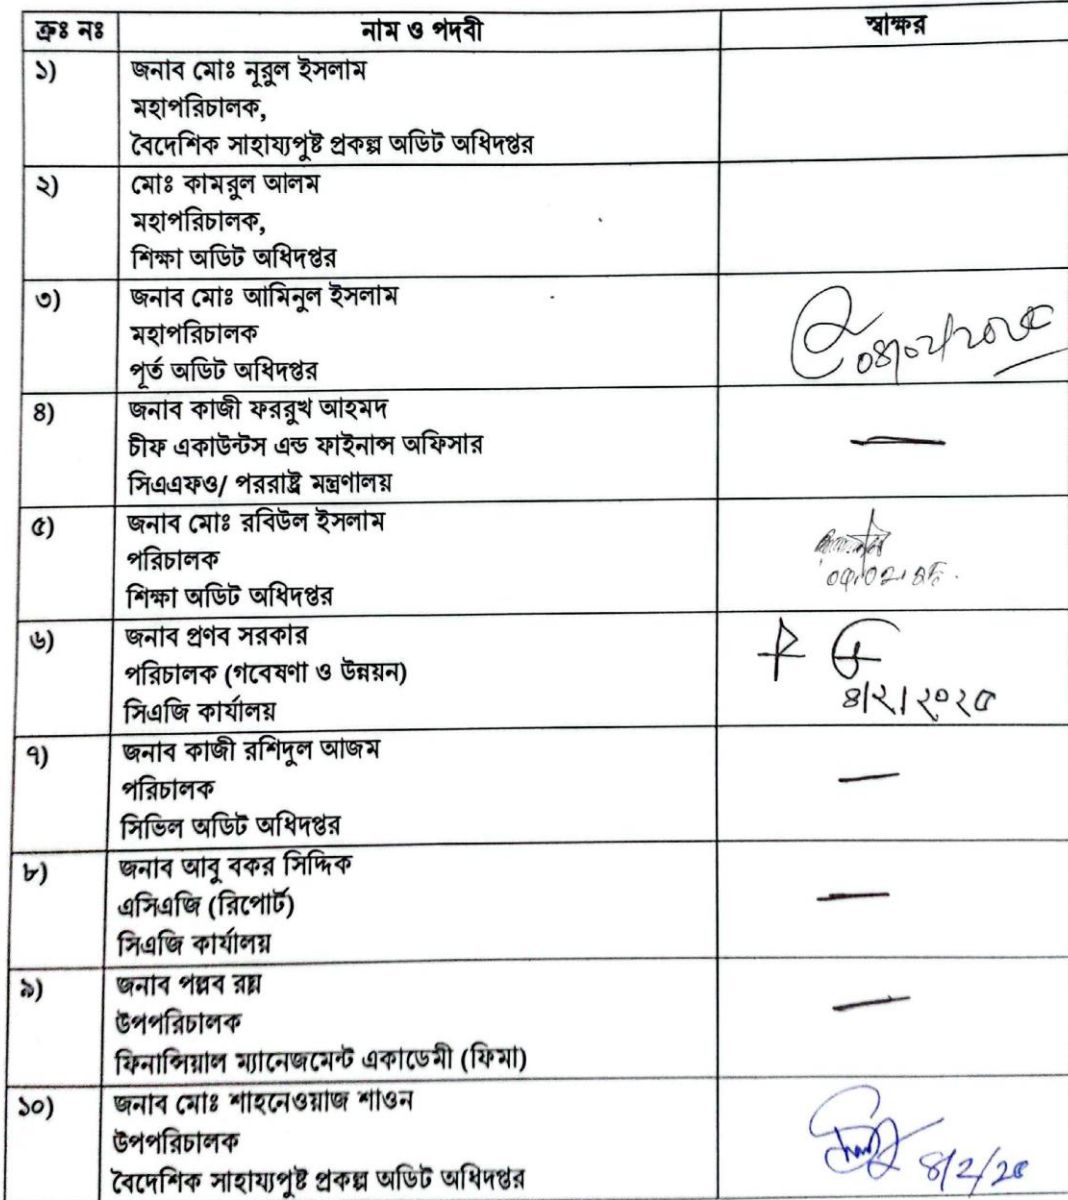 ক্রঃ নঃ নাম ও পদবী স্বাক্ষর
১) জনাব মোঃ নূরুল ইসলাম
মহাপরিচালক,
বৈদেশিক সাহায্যপুষ্ট প্রকল্প অডিট অধিদপ্তর
২) মোঃ কামরুল আলম
মহাপরিচালক,
শিক্ষা অডিট অধিদপ্তর
৩) জনাব মোঃ আমিনুল ইসলাম
মহাপরিচালক
পূর্ত অডিট অধিদপ্তর
০৪/০২/২০২৫
৪) জনাব কাজী ফররুখ আহমদ
চীফ একাউন্টস এন্ড ফাইনান্স অফিসার
সিএএফও/ পররাষ্ট্র মন্ত্রণালয়
৫) জনাব মোঃ রবিউল ইসলাম
পরিচালক
শিক্ষা অডিট অধিদপ্তর
৬) জনাব প্রণব সরকার
পরিচালক (গবেষণা ও উন্নয়ন)
সিএজি কার্যালয়
৪/২/২০২৫
৭) জনাব কাজী রশিদুল আজম
পরিচালক
সিভিল অডিট অধিদপ্তর
৮) জনাব আবু বকর সিদ্দিক
এসিএজি (রিপোর্ট)
সিএজি কার্যালয়
৯) জনাব পল্লব রায়
উপপরিচালক
ফিনান্সিয়াল ম্যানেজমেন্ট একাডেমী (ফিমা)
১০) জনাব মোঃ শাহনেওয়াজ শাওন
উপপরিচালক
বৈদেশিক সাহায্যপুষ্ট প্রকল্প অডিট অধিদপ্তর
৪/2/২৫